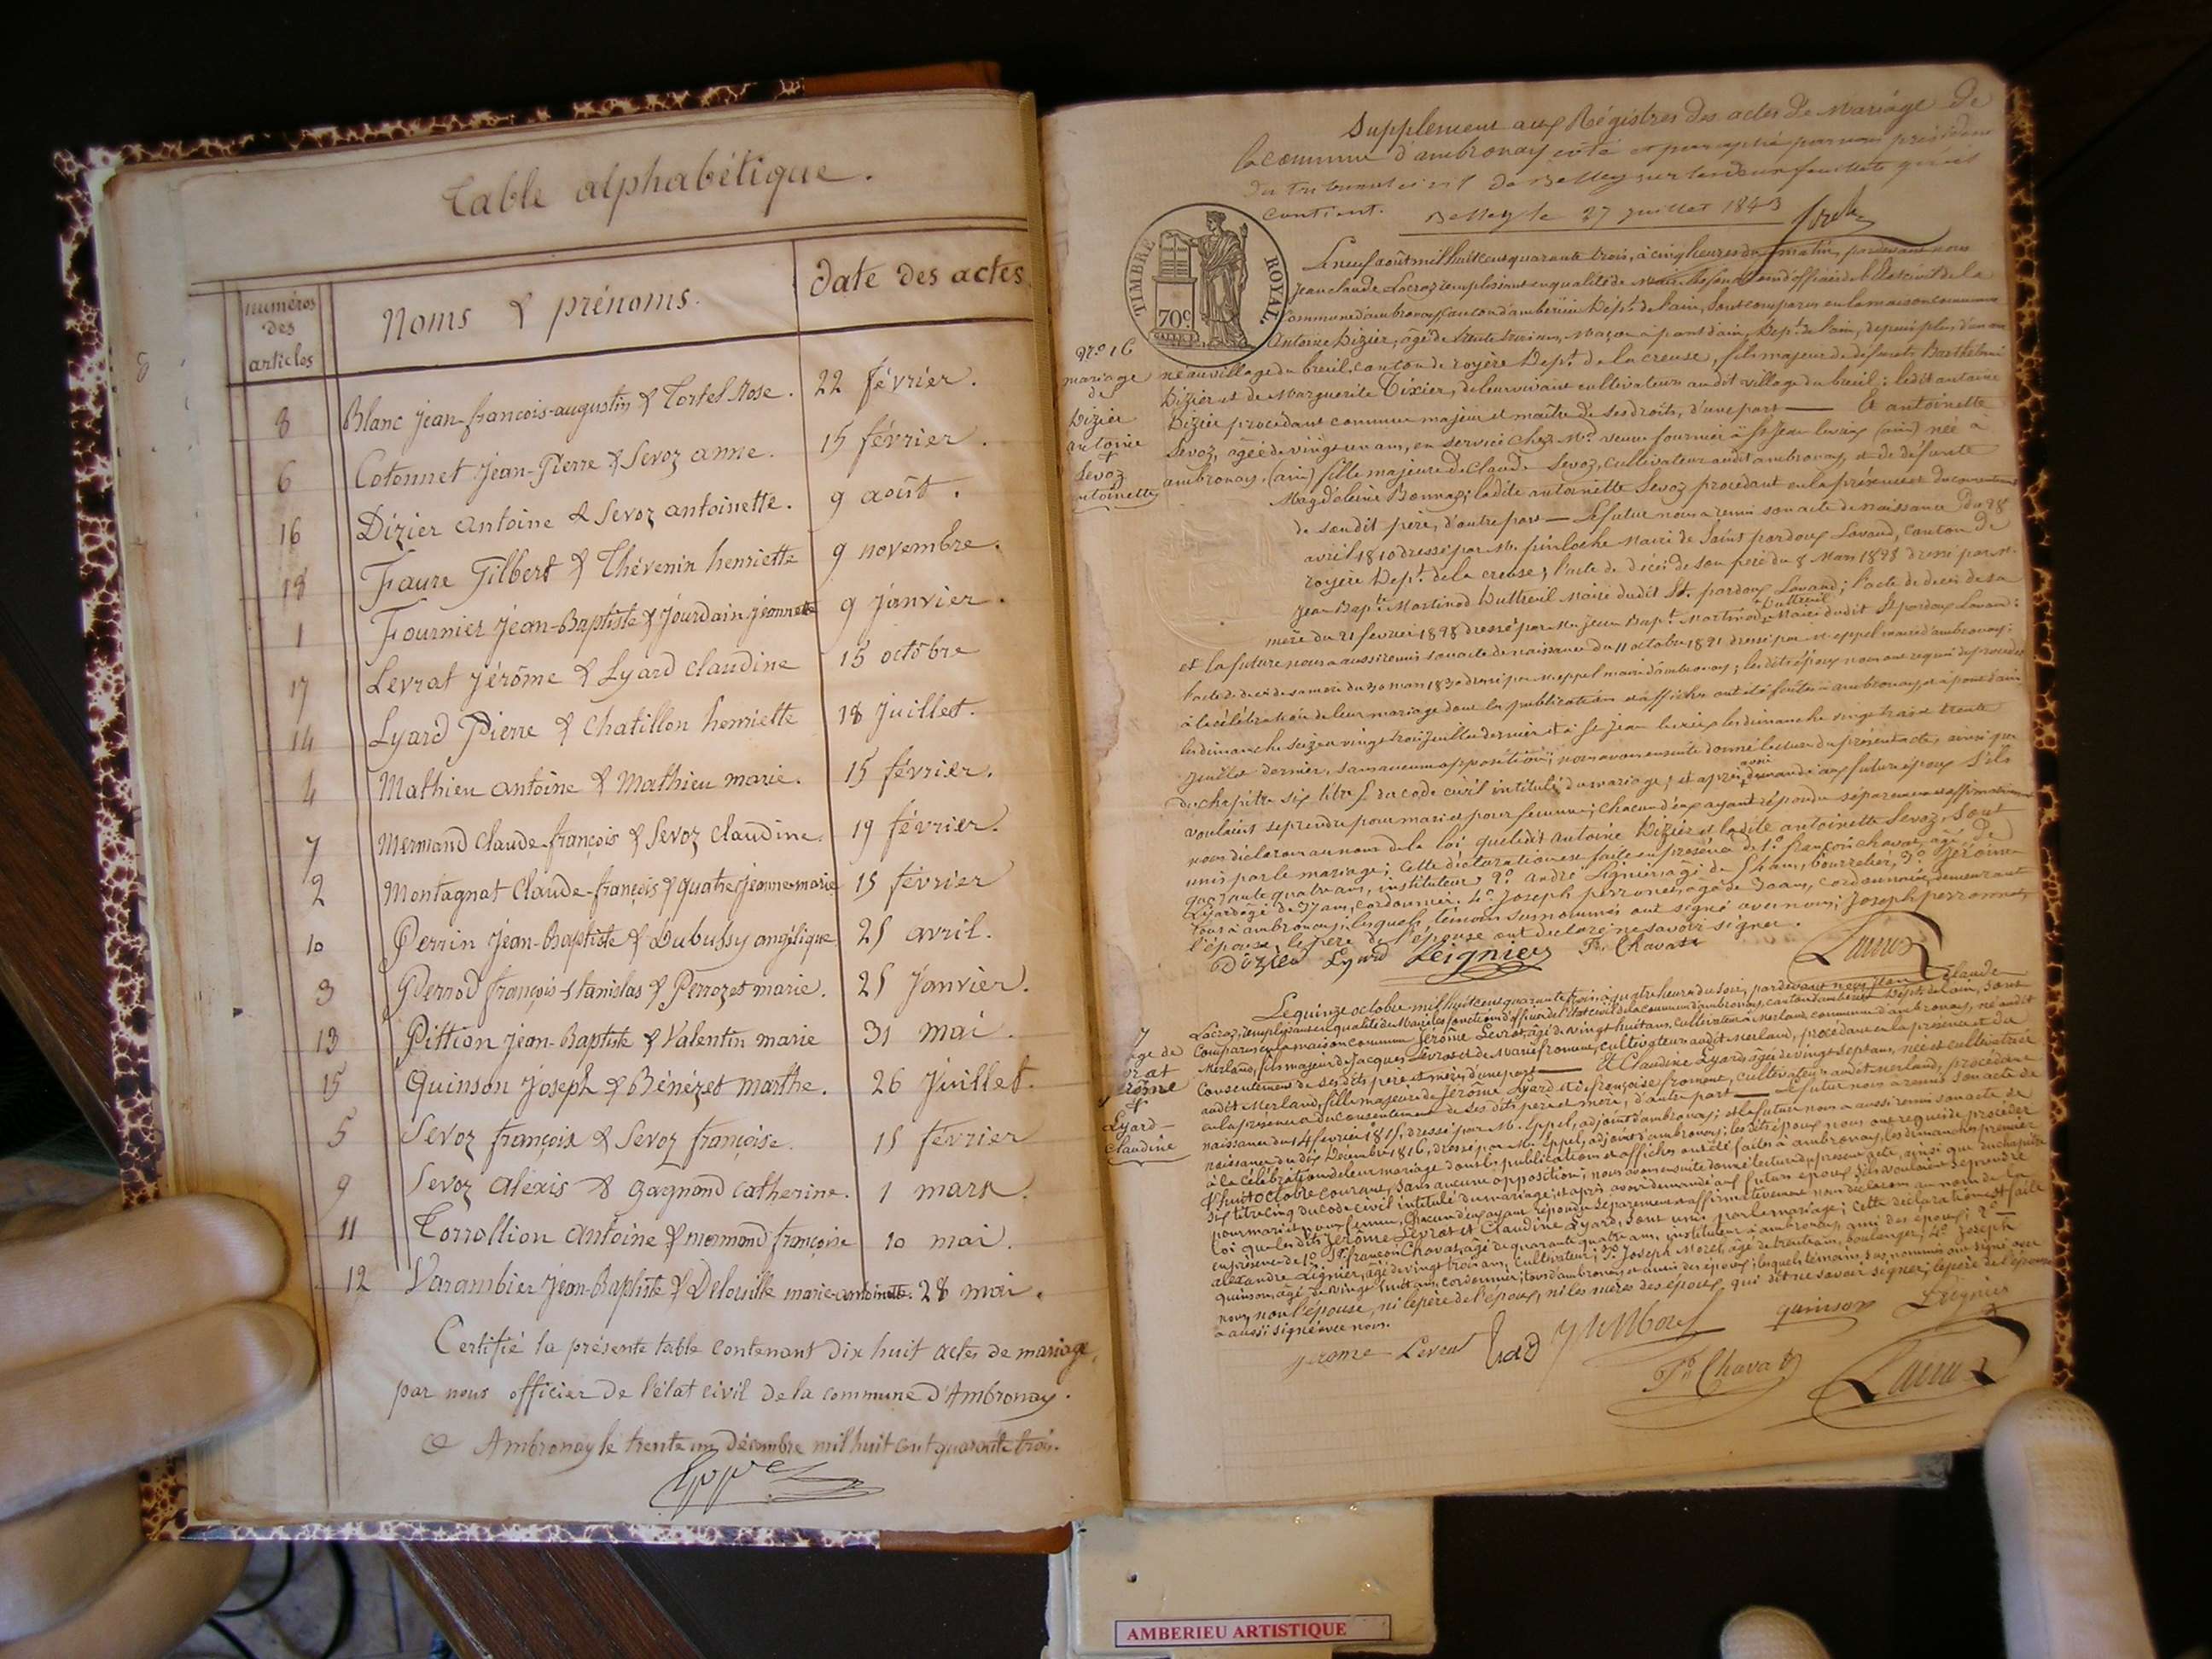 Table alphabétique.
numéros des articles
Noms & prénoms.
Date des actes
8 Blanc Jean-françois-augustin & Tortel Rose. 22 février.
6 Cotonnet Jean-Pierre & Sevoz anne. 15 février.
16 Dizier Antoine & Sevoz antoinette. 9 août.
18 Faure Gilbert & Thévenin henriette 9 novembre.
1 Fournier Jean-Baptiste & Jourdain jeannette 9 janvier.
17 Levrat Jérôme & Lyard Claudine 15 octobre
14 Lyard Pierre & Chatillon henriette 18 Juillet.
4 Mathieu antoine & Mathieu marie. 15 février.
7 Mermand Claude-françois & Sevoz Claudine. 19 février.
2 Montagnat Claude-françois & quatre Jeanne-marie 15 février
10 Perrin Jean-Baptiste & Dubussy angélique 25 avril.
3 Perrod françois-stanislas & Perrozet marie. 25 Janvier.
13 Pittion Jean-Baptiste & Valentin marie 31 mai
15 Quinson Joseph & Bénézet marthe. 26 Juillet.
5 Sevoz françois & Sevoz françoise. 15 février
9 Sevoz Alexis & Gagnand Catherine. 1 mars.
11 Torrollion Antoine & mermand françoise 10 mai.
12 Varambier Jean-Baptiste & Delouille marie-antoinette. 28 mai.
Certifié la présente table contenant dix huit actes de mariage,
par nous officier de l'état civil de la commune d'Ambronay.
A Ambronay le trente un décembre mil huit cent quarante trois.
Supplement aux Régistres des actes de Mariage de
la commune d'ambronay coté et paraphé par nous président
du tribunal civil de Belley sur les deux feuillets qu'il
contient. Belley le 27 juillet 1843
TIMBRE ROYAL.
70c
No 16
mariage
de
Dizier
antoine
&
Sevoz
antoinette
Le neuf août mil huit cent quarante trois, à cinq heures du matin, pardevant nous
Jean Claude Lacroz remplissant en qualité de Maire les fonctions d'officier de l'état civil de la
Commune d'ambronay, canton d'ambérieu Dépt. de l'ain, sont comparus en la maison commune
Antoine Dizier, âgé de trente trois ans, Maçon à pont d'ain, Dépt. de l'ain, depuis plus d'un an
né au village du breuil, canton de royère Dept. de la creuse, fils majeur de défunts Barthélemi
Dizier et de Marguerite Tixier, de leur vivant cultivateurs au dit village du breuil; ledit antoine
Dizier procédant comme majeur et maître de ses droits, d'une part — Et antoinette
Sevoz, âgée de vingt un ans, en service chez Md. veuve fournier à St Jean le vieux (ain) née à
ambronay, (ain) fille majeure de Claude Sevoz, cultivateur audit ambronay et de défunte
Magdeleine Bonnaz; ladite antoinette Sevoz procédant en la présence et du consentement
de son dit père, d'autre part — Le futur nous a remis son acte de naissance du 28
avril 1810 dressé par Mr. pinloche Maire de Saint pardoux Lavaud, Canton de
royère Dept. de la creuse; l'acte de décès de son père du 8 Mars 1828 dressé par Mr.
Jean Bapte. Martinod Dutreuil Maire dudit St. pardoux Lavaud; l'acte de décès de sa
mère du 21 février 1828 dressé par Mr. Jean Bapt. Martinod Dutreuil Maire dudit St pardoux Lavaud:
et la future nous a aussi remis son acte de naissance du 11 octobre 1821 dressé par Mr. eppel maire d'ambronay;
l'acte de décès de sa mère du 30 mars 1830 dressé par Mr. eppel maire d'ambronay; lesdits époux nous ont requis de procéder
à la célébration de leur mariage dont les publications et affiches ont été faites à ambronay, et à pont d'ain
les dimanche seize et vingt trois juillet dernier et à St Jean le vieux les dimanche vingt trois et trente
juillet dernier, sans aucune opposition; nous avons ensuite donné lecture du présent acte, ainsi que
du chapitre six titre 5 du code civil intitulé du mariage; et après avoir demandé aux futurs époux s'ils
voulaient se prendre pour mari et pour femme; chacun d'eux ayant répondu séparément et affirmativement
nous déclarons au nom de la loi que ledit antoine Dizier et ladite antoinette Sevoz, sont
unis par le mariage; cette déclaration est faite en présence de 1o françois chavat, âgé de
quarante quatre ans, instituteur, 2o. andré Lignier, âgé de 54 ans, bourrelier, 3o. Jérôme
Lyard âgé de 37 ans, cordonnier. 4o. Joseph perronet, âgé de 30 ans, cordonnier, demeurant
tous à ambronay; lesquels témoins susnommés ont signé avec nous; Joseph perronet,
l'épouse, le père de l'épouse ont déclaré ne savoir signer.
Dizier Lyard Leignier Fs. Chavat Lacroz
Lyard
Claudine
Le quinze octobre mil huit cent quarante trois, à quatre heures du soir, pardevant nous Jean Claude
Lacroz, remplissant en qualité de Maire les fonctions d'officier de l'état civil de la commune d'ambronay, canton d'ambérieu Dépt. de l'ain, sont
Comparus en la maison commune Jérôme Levrat, âgé de vingt huit ans, cultivateur à Merland, commune d'ambronay, né audit
Merland, fils majeur de Jacques Levrat et de Marie froment, cultivateurs audit Merland, procédant en la présence et du
Consentement de ses dits père et mère, d'une part — Et Claudine Lyard, âgée de vingt sept ans, née et cultivatrice
audit Merland, fille majeure de Jérôme Lyard et de françoise froment, cultivateurs audit Merland, procédant
en la présence et du consentement de ses dits père et mère, d'autre part — Le futur nous a remis son acte de
naissance du 14 février 1815, dressé par M. Eppel, adjoint d'ambronay; et la future nous a aussi remis son acte de
naissance du dix Décembre 1816, dressé par Mr. Eppel, adjoint d'ambronay; lesdits époux nous ont requis de procéder
à la Célébration de leur mariage dont les publications et affiches ont été faites à ambronay, les dimanches premier
& huit octobre courant, sans aucune opposition; nous avons ensuite donné lecture du présent acte, ainsi que du chapitre
six titre cinq du code civil intitulé du mariage; et après avoir demandé aux futurs époux s'ils voulaient se prendre
pour mari et pour femme, chacun d'eux ayant répondu séparément et affirmativement nous déclarons au nom de la
loi que lesdits Jérôme Levrat et Claudine Lyard, sont unis par le mariage; cette déclaration est faite
en présence de 1o. françois Chavat, âgé de quarante quatre ans, instituteur à ambronay, ami des époux; 2o
alexandre Lignier, âgé de vingt trois ans, cultivateur; 3o. Joseph Morel, âgé de trente ans, boulanger; 4o. Joseph
quinson, âgé de vingt huit ans, cordonnier; tous d'ambronay et amis des époux; lesquels témoins susnommés ont signé avec
nous, non l'épouse, ni le père de l'époux, ni les mères des époux, qui ont dit ne savoir signer; le père de l'épouse
a aussi signé avec nous.
jerome Levrat Liard Morel quinson Leignier
Fs Chavat Lacroz
AMBERIEU ARTISTIQUE